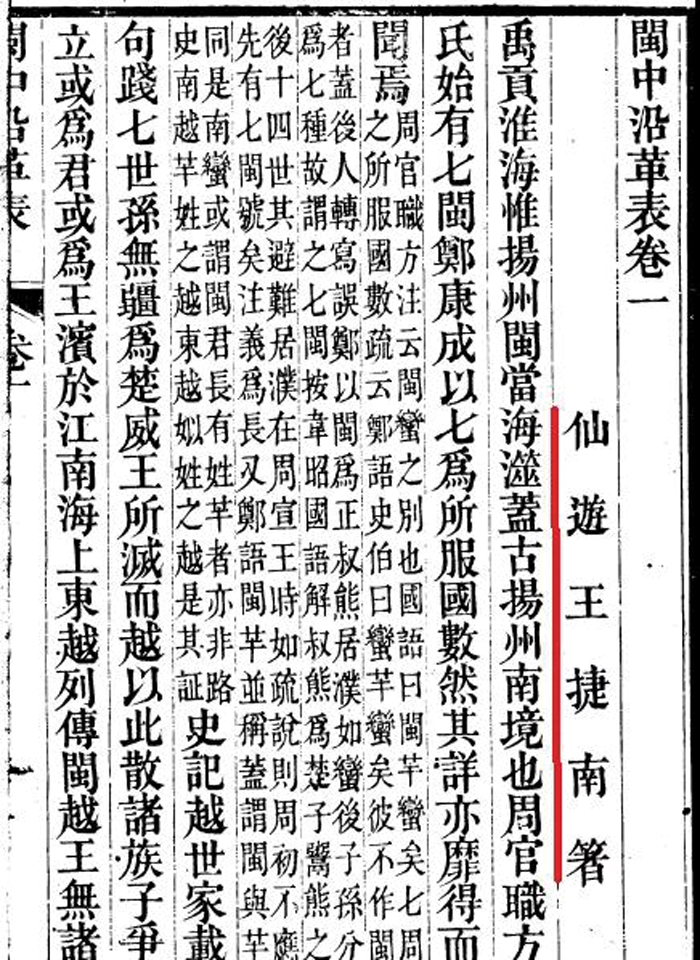 閩中沿革表卷一
仙遊王捷南箸
禹貢淮海惟揚州閩當海澨蓋古揚州南境也周官職方
氏始有七閩鄭康成以七爲所服國數然其詳亦靡得而
聞焉
周官職方注云閩蠻之別也國語曰閩芈蠻矣七周
之所服國數疏云鄭語史伯曰蠻芈蠻矣彼不作閩
者蓋後人轉寫誤鄭以閩爲正叔熊居濮如蠻後子孫分
爲七種故謂之七閩按韋昭國語解叔熊爲楚子鬻熊之
後十四世其避難居濮在周宣王時如疏說則周初不應
先有七閩號矣注義爲長又鄭語閩芈並稱蓋謂閩與芈
同是南蠻或謂閩君長有姓芈者亦非路
史南越芈姓之越東越姒姓之越是其証
史記越世家載
句踐七世孫無疆爲楚威王所滅而越以此散諸族子爭
立或爲君或爲王濱於江南海上東越列傳閩越王無諸
閩中沿革表
卷一